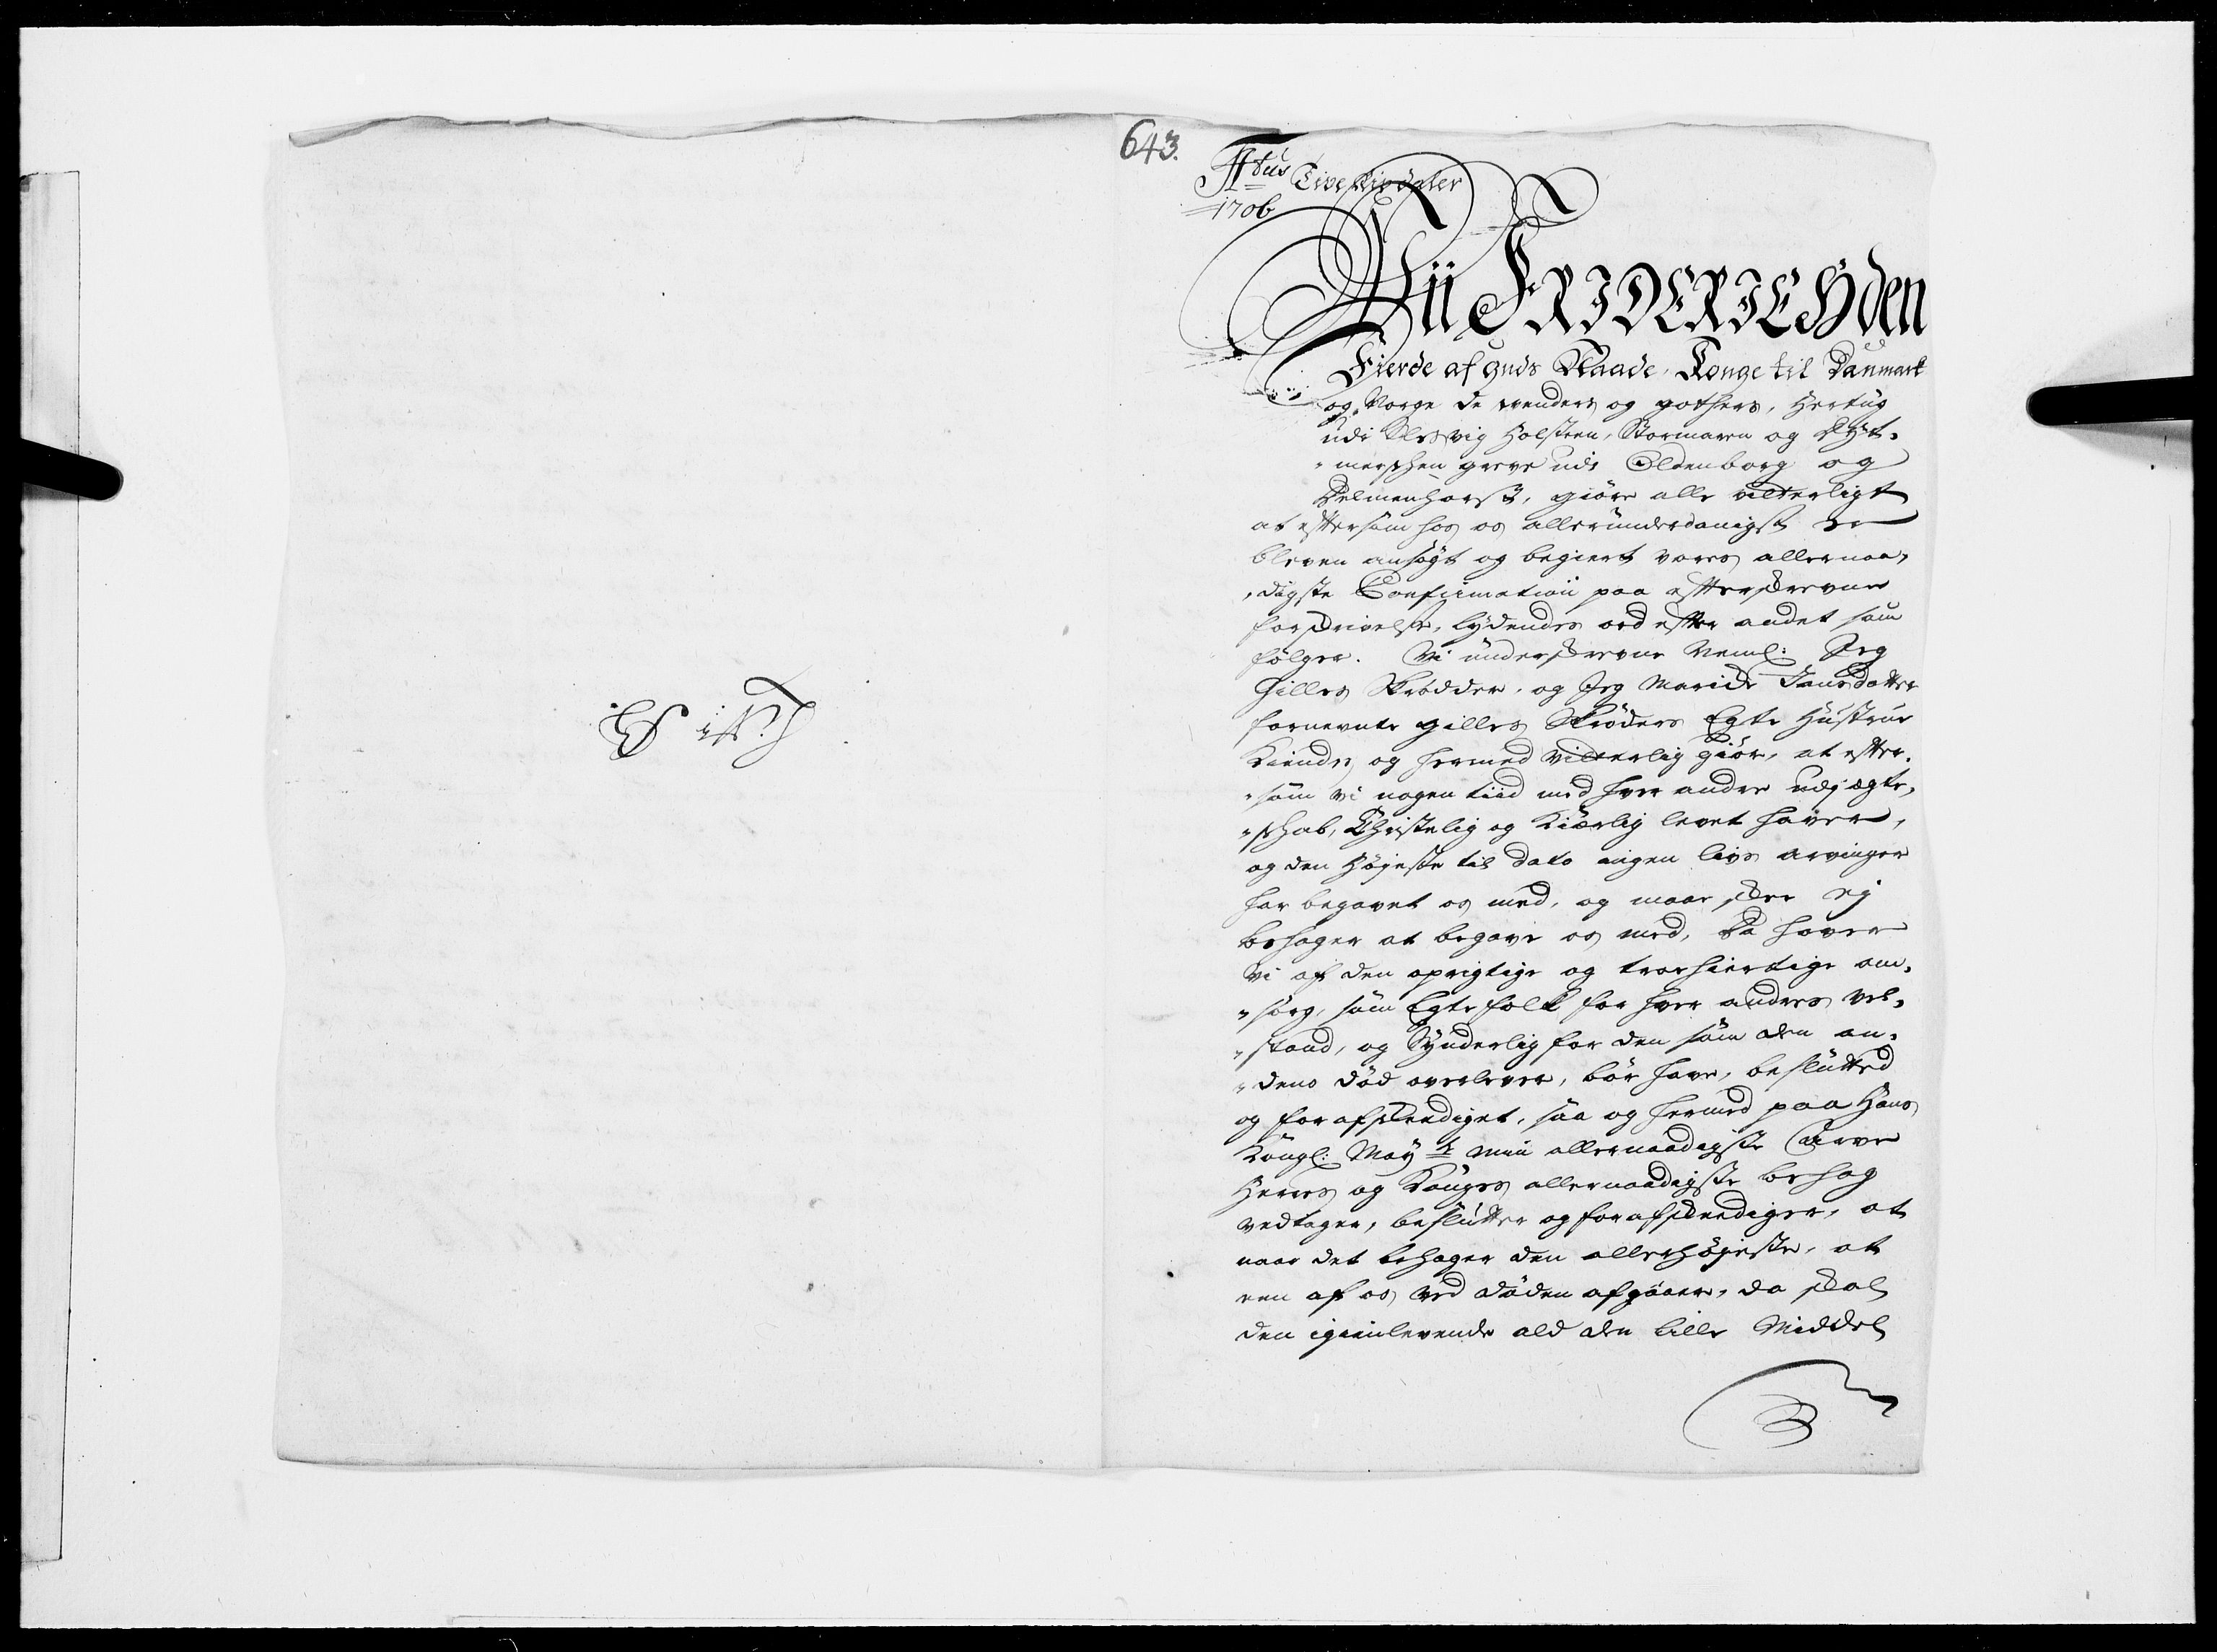 643.
Tive
1706
Wii FRIDERICH den
Fierde af Guds Naade, Konge til Danmark
og Norge de wenders og gothers, Hertug
udi Slesvig Holsteen, Stormaren og Dyt-
-merschen greve udi Oldenborg og
Delmenhorst, giøre alle vitterligt
at eftersom hos os allerunderdanigst er
bleven ansøgt og begiert vores allernaa-
-digste Confirmation paa efterskrevne
forskrivelse, lydendes ord efter andet som
følger. Vi underskrevne Neml: Jeg
Gilles Skrødder, og Jeg Maride Jansdatter
fornevnte gilles Skrøders Egte Hustrue
Kiendes og hermed vitterlig giør, at efter-
-som vi nogen tiid med hver andre udj ægte-
-schab, Christelig og Kiærlig levet haver,
og den Høyeste til dato ingen livs arvinger
har begavet os med, og maa skee ej
behager at begave os med, Da haver
Vi af den oprigtige og troehiertige om-
-sorg, som Egtefolk for hver andres vel-
-stand, og Synderlig for den som den an-
-dens død overlever, bør have, beslutted
og forafskeediget, saa og hermed paa Hans
Kongl: May:ts min allernaadigste Arve
Herres og Konges allernaadigste behag
vedtager, beslutter og forafskeediger, at
naar det behager den allerhøjeste, at
een af os ved døden afgaaer, da skal
den igienlevende ald den lille Middel